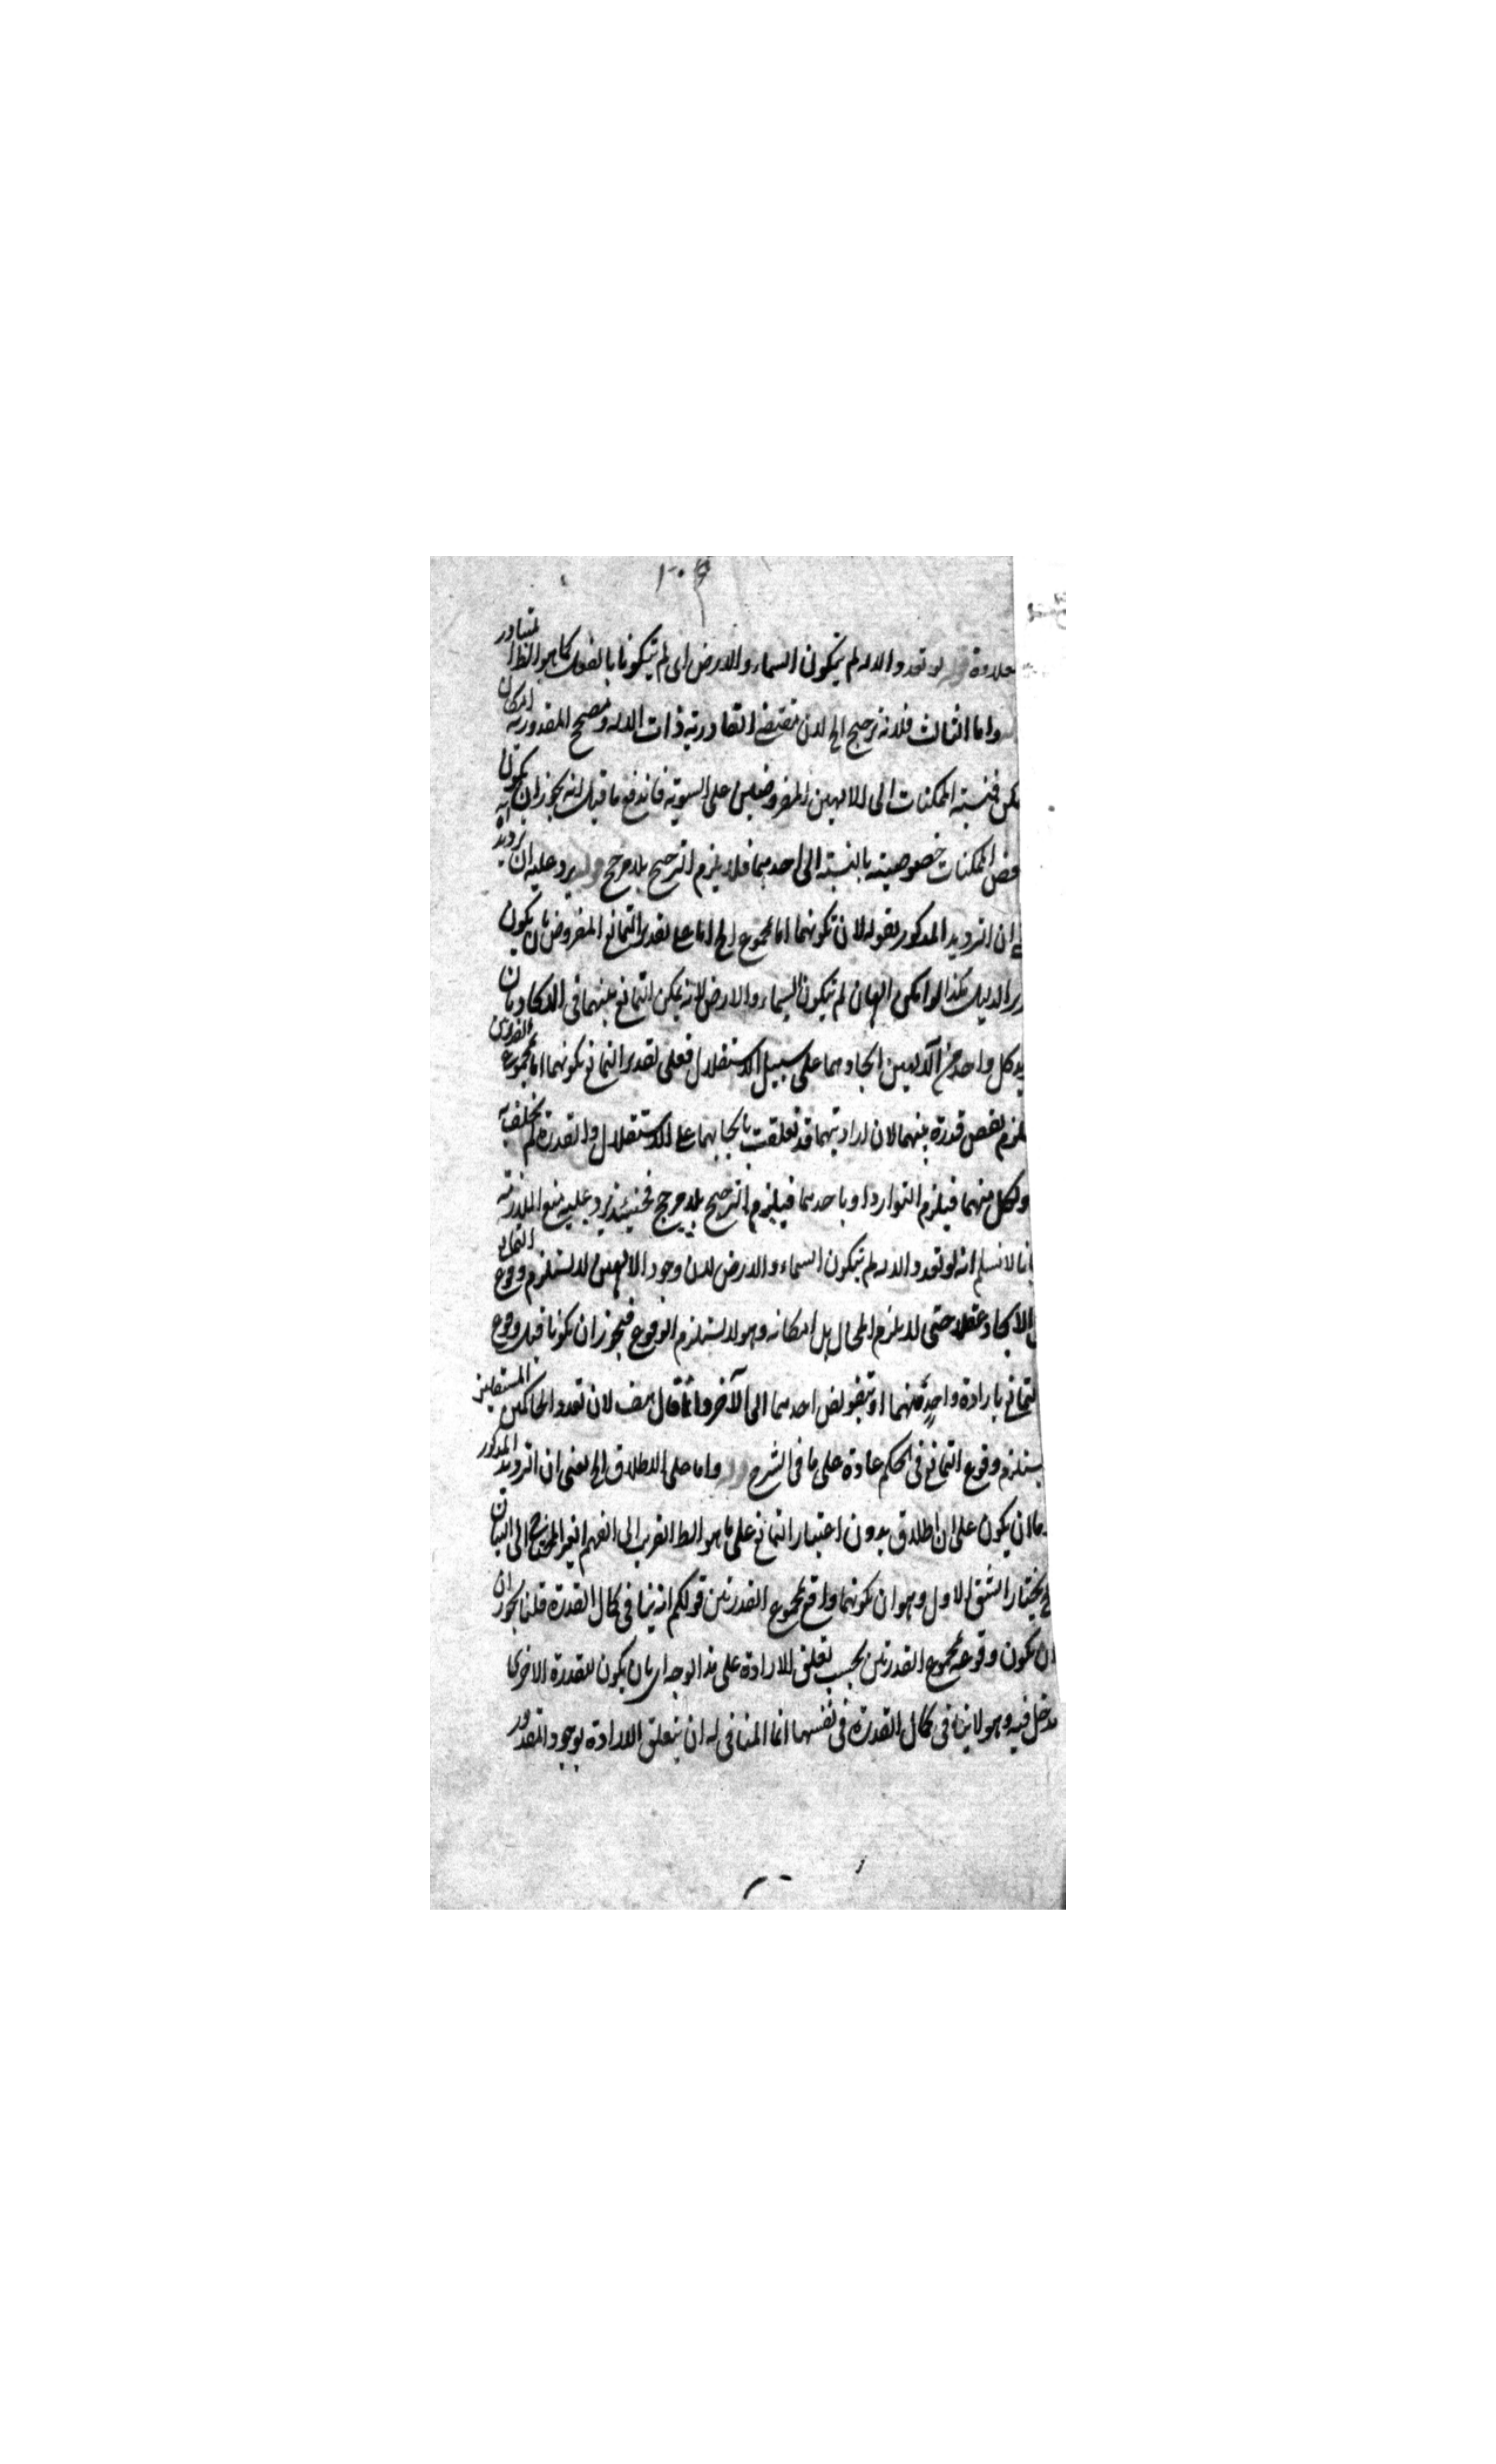 علاوة قوله لو تعدد الاله لم يتكون السماء والارض اى لم يتكونا بالفعل كما هو الظا المتبادر
واما الثالث فلانه ترجيح الخ لان مقتضى القادرية ذات الاله ومصحح المقدورية امكان
فنسبة الممكنات الى الالهين المفروضين على السوية فاندفع ما قيل انه يجوز ان يكون
الممكنات خصوصية بالنسبة الى احدهما فلا يلزم الترجيح بلا مرجح قوله يرد عليه ان ترديد
ان الترديد المذكور بقوله لان تكونهما اما بمجموع الخ اما على تقدير التمانع المفروض بان يكون
الدليل هكذا لو امكن الهان لم يتكون السماء والارض لانه يمكن التمانع بينهما فى الايجاد بان
يريد كل واحد من الالهين ايجادهما على سبيل الاستقلال فعلى تقدير التمانع تكونهما اما بمجموع القدرتين
يلزم نقص قدرة منهما لان ارادتيهما قد تعلقت بايجابهما على الاستقلال والقدرة لم
او بكل منهما فيلزم التوارد او باحدهما فيلزم الترجيح بلا مرجح فحينئذ يرد عليه منع الملازمة
بانا لا نسلم انه لو تعدد الاله لم يتكون السماء والارض لان وجود الالهين لا يستلزم وقوع التمانع
الايجاد عقلا حتى لا يلزم المحال بل امكانه وهو لا يستلزم الوقوع فيجوز ان يكونا قبل وقوع
التمانع بارادة واحد منهما او بتفويض احدهما الى الآخر وانما قال لان تعدد الحاكمين المستقلين
يستلزم وقوع التمانع فى الحكم عادة على ما فى الشرح قوله واما على الاطلاق الخ يعنى ان الترديد المذكور
اما ان يكون على الاطلاق بدون اعتبار التمانع على ما هو الظ القريب الى الفهم الغير المحتاج الى البيان
يختار الشق الاول وهو ان تكونهما واقع بمجموع القدرتين قولكم انه ينافى كمال القدرة قلنا يجوز ان
ان يكون وقوعه بمجموع القدرتين بحسب تعلق الارادة على هذا الوجه اى بان يكون للقدرة الاخرى
مدخل فيه وهو لا ينافى كمال القدرة فى نفسها انما المنافى له ان يتعلق الارادة بوجود المقدور